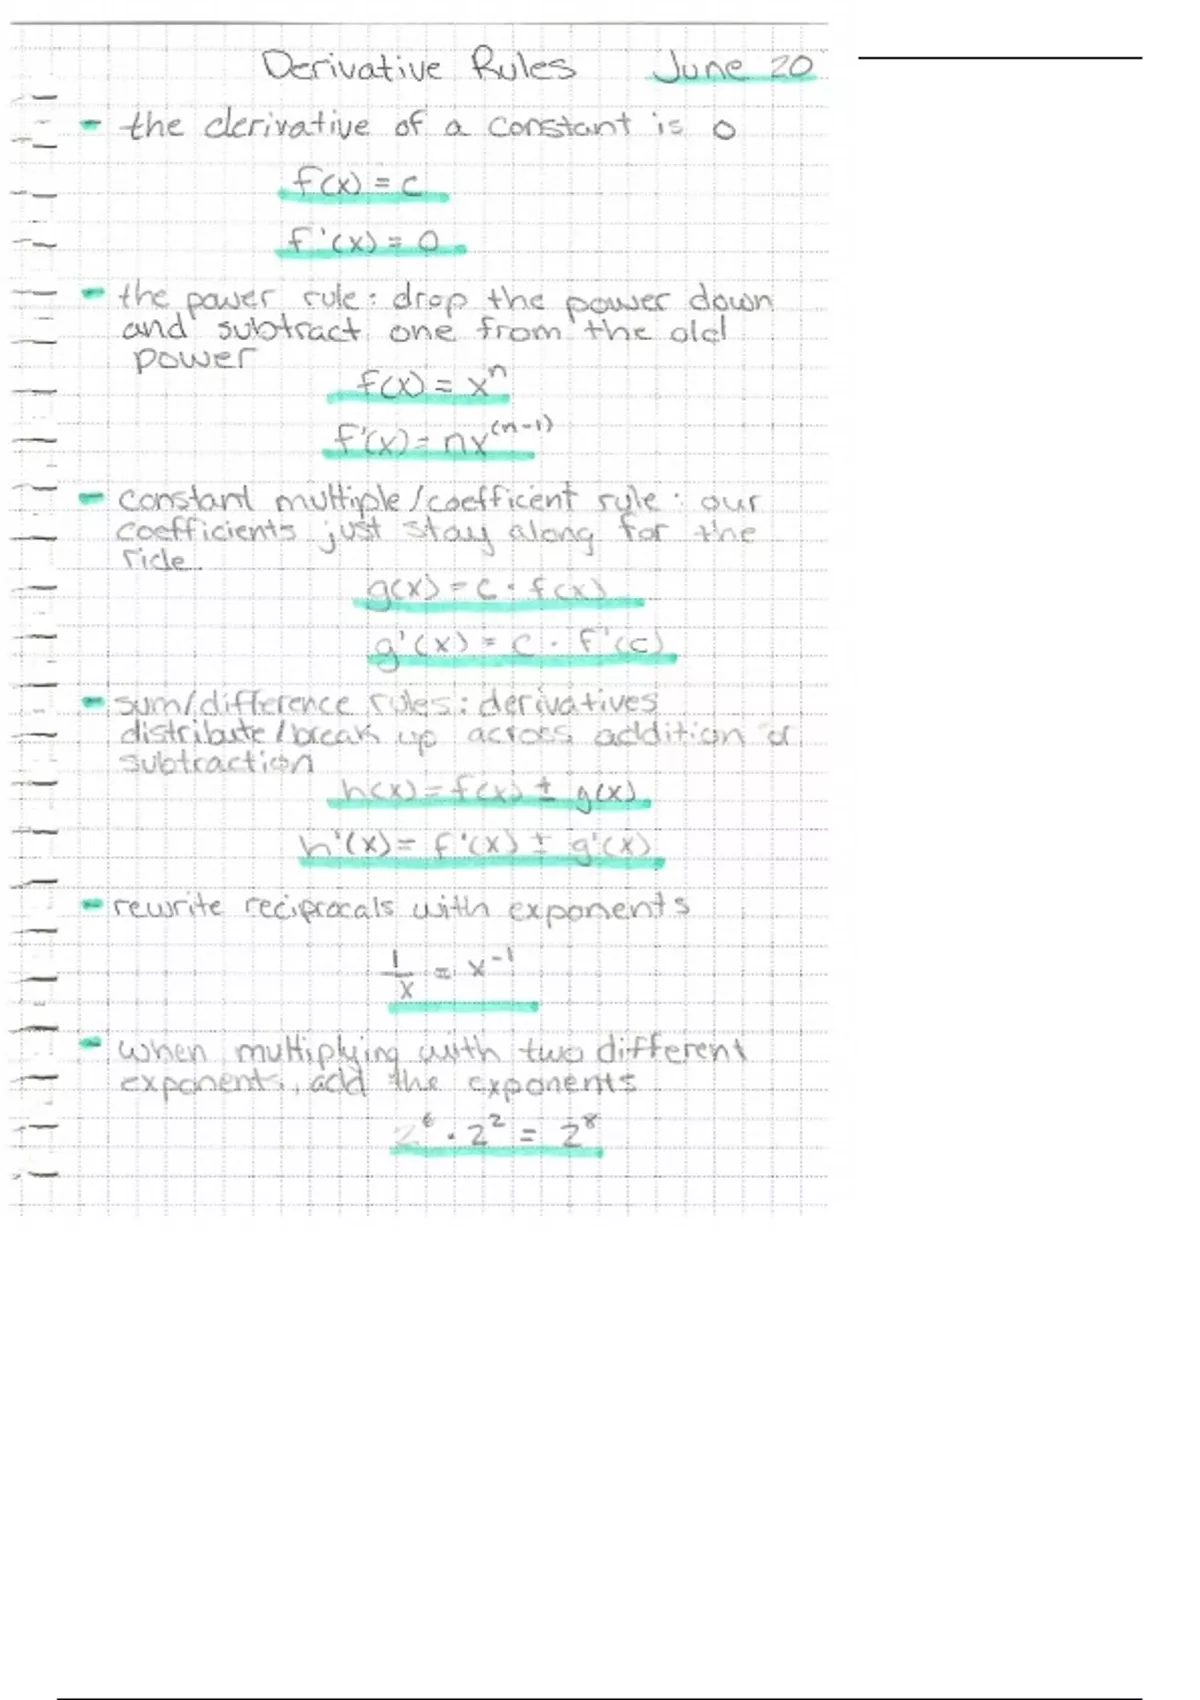 Derivative Rules June 20
- the derivative of a constant is 0
f(x) = c
f'(x) = 0
- the power rule: drop the power down
and subtract one from the old
power
f(x) = xⁿ
f'(x) = nx⁽ⁿ⁻¹⁾
- constant multiple/coefficent rule: our
coefficients just stay along for the
ride
g(x) = c · f(x)
g'(x) = c · f'(c)
- sum/difference rules: derivatives
distribute/break up across addition or
subtraction
h(x) = f(x) ± g(x)
h'(x) = f'(x) ± g'(x)
- rewrite reciprocals with exponents
1/x = x⁻¹
- when multiplying with two different
exponents, add the exponents
2⁶ · 2² = 2⁸